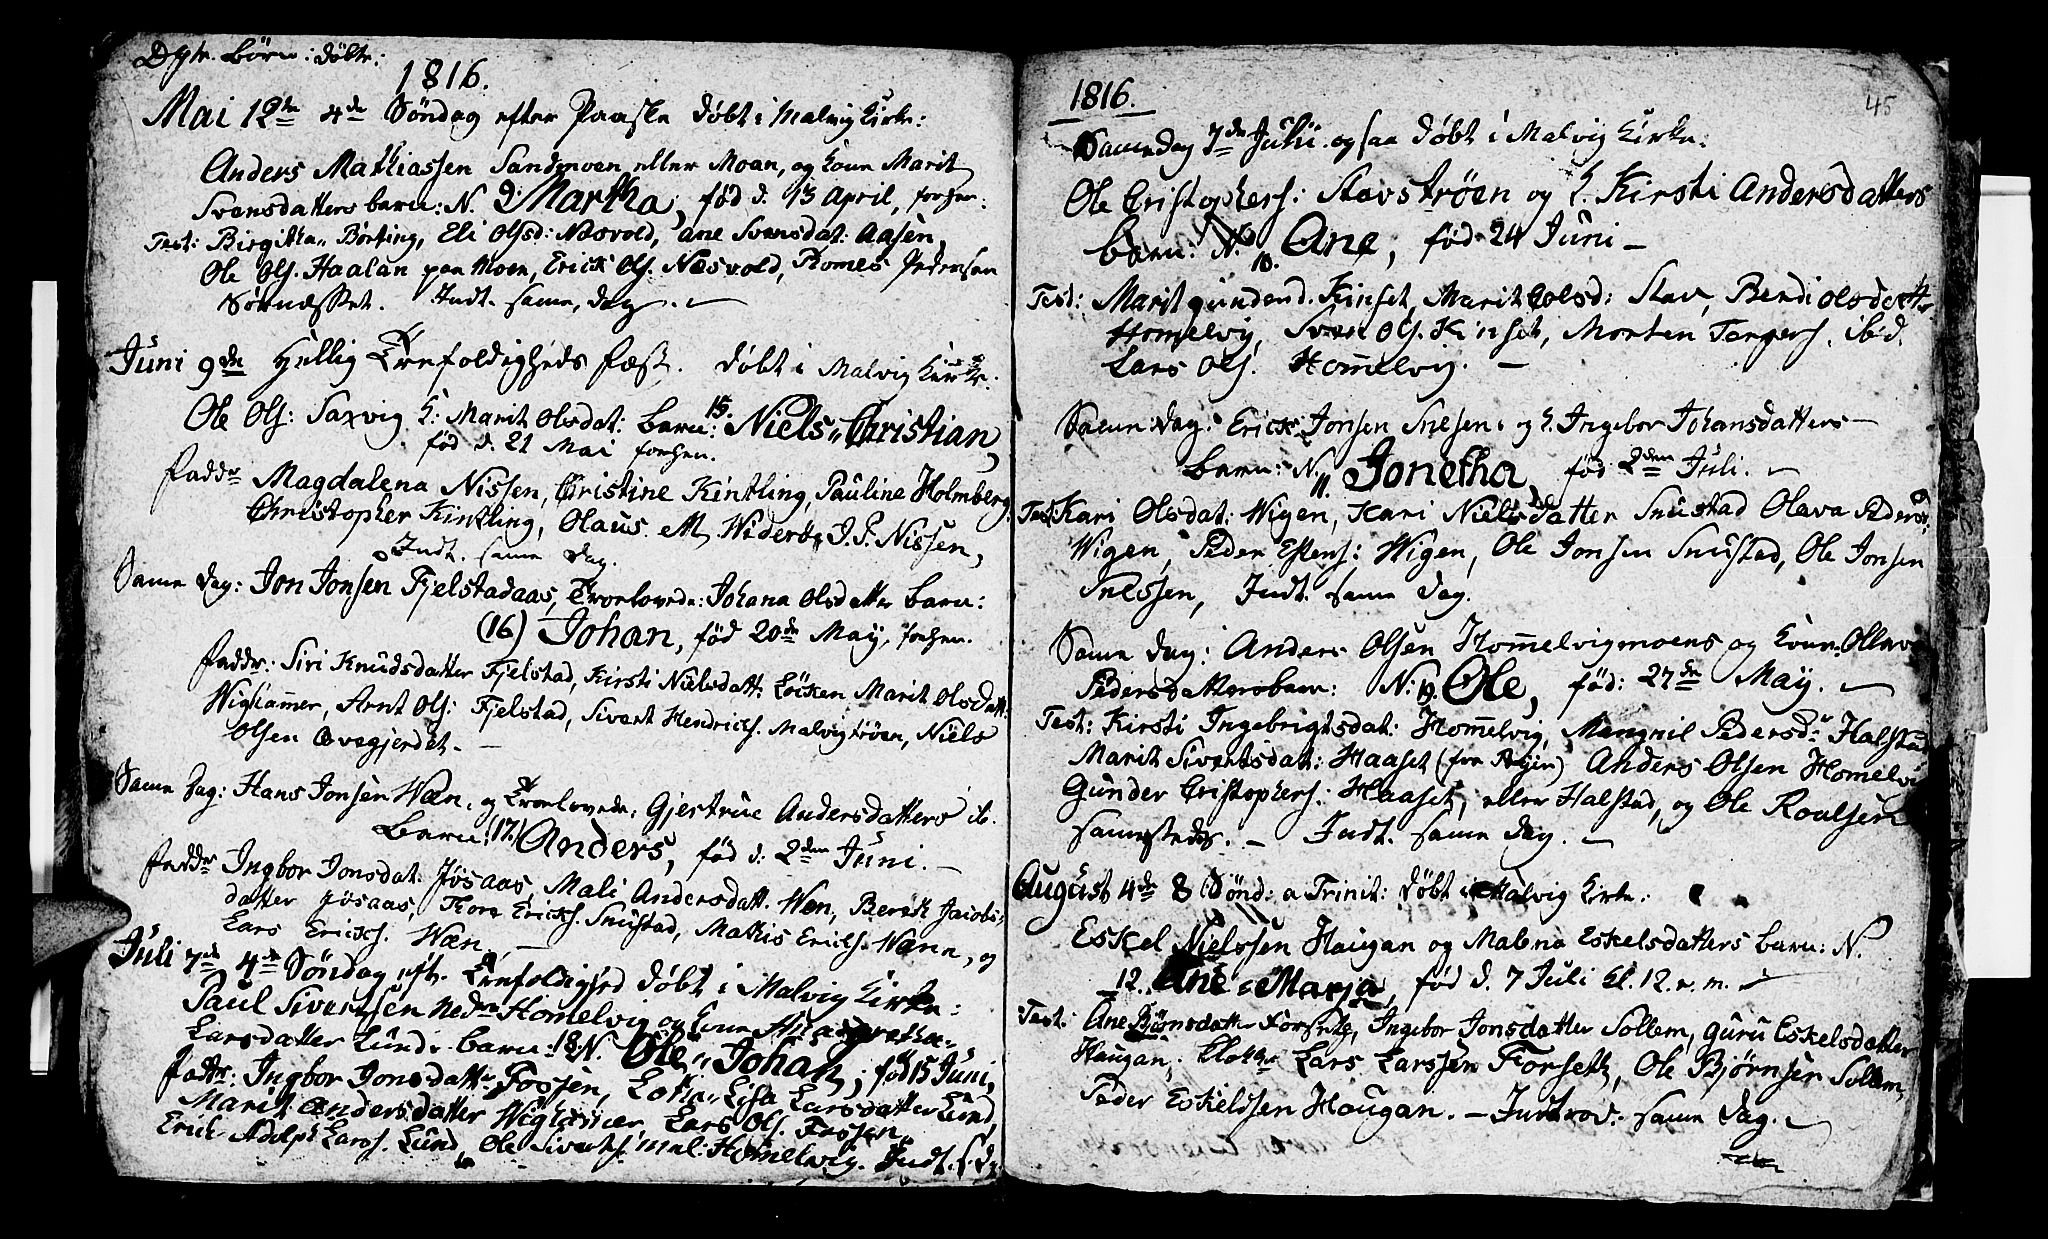 Børn: døbte:
1816.
Mai 12te 4de Søndag efter Paaske døbt i Malvig Kirke:
Anders Mathiassen Sandmoen eller Moan, og kone Marit
Svensdatters barn: N. Martha, fød d. 13 April,
Test: Birgitha Börting, Eli Olsd: Næsvold, ane Svensdat: Aasen,
Ole Ols. Haalan paa Moen, Erick Ols. Næsvold, Romes Pedersen
Sørnæsset. Indt. samme dag.
Juni 9de Hellig Trefoldigheds Fæst. døbt i Malvig Kirke:
Ole Ols: Saxvig k: Marit Olsdat: barn: 15. Niels Christian,
fød d. 21 Mai forhen.
Faddr Magdalena Nissen, Christine Kintling, Pauline Holmberg
Christopher Kintling, Olaus M. Widerøe J. P. Nissen,
Indt. same dag.
Same dag: Jon Jonsen Fjelstadaas, Trorlovede: Johana Olsdatter barn:
(16) Johan, fød 20de May, forhen.
Faddr: Siri Knudsdatter Fjelstad, Kirsti Nielsdatt: Löcken Marit Olsdatt:
Wighammer, Arnt Ols: Fjelstad, Sivert Hendrichs. Malvigtrøen, Niels
Olsen Qvegjerdet.
Same dag: Hans Jonsen Wæn, og Trorlovede: Gjestrue Andersdatters
Barn: (17.) Anders, fød d: 2den Juni.
Faddr Ingbor Jonsdat: Jøsaas, Mali Andersdatt. Wæn, Bereth Jacobs-
datter Jøsaas, Thore Ericks. Snustad, Mathis Ericks. Wæn, og
Lars Ericks. Wæn.
Juli 7de 4de Søndag eft. Trefoldighed døbt i Malvig Kirke:
Paul Sivertsen Nedre Homelvig og kone
Larsdatter Lund: barn: 18. N. Ole Johan, fød 15 Juni,
Faddr: Ingbor Jonsdatter Fossen, Lisa Larsdatter Lund,
Marit Andersdatter Wighammer, Lars Ols. Fossen,
Erick Adolph Larss. Lund, Ole Siverts. Homelvig. Indt. s. d.
1816. 45
Same dag 7de Julii ogsaa døbt i Malvig Kirke:
Ole Cristophers: Stavströen og k. Kirsti Andersdatters
barn: N. 10. Ane, fød 24 Juni –
Test: Marit gundend. Kinset, Marit Olsd: Stav, Berdi olsdatt
Homelvig, Sven Ols. Kinset, Morten Torgers. ibid.
Lars Ols. Homelvig. –
Same dag: Erick Jonsen Snesen: og k. Ingebor Johansdatters –
barn: N. 11. Jonetha, fød 2den Juli. –
Test: Kari Olsdat: Wigen, Kari Nielsdatter Snustad Olava Peders
Wigen, Peder Estens: Wigen, Ole Jonsen Snustad, Ole Jonsen
Snessen, Indt. same dag.
Same dag: Anders Olsen Homelvigmoens og kone Ollava
Pedersdatters barn: N: 19. Ole, fød: 27de May. –
Test: Kirsti Ingebrigtsdat: Homelvig, Mangnil Pedersd. Halstad
Marit Sivertsdat: Haaset Anders Olsen Homelvi
Gunder Cristophers: Haaset, eller Halstad, og Ole Roalsen
samesteds. – Indt. same dag. –
August 4de 8 Sönd: a Trinit: døbt i Malvig Kirke:
Eskel Nielssen Haugan og Malena Eskelsdatters barn: N.
12. Ane Marja, fød d. 7 Juli kl. 12. e. m.
Test: Ane Bjønsdatter Forseth, Ingebor Jonsdatter Sollem, guru Eskelsdatter
Haugan, Lars Larssen Forseth, Ole Bjørnsen Sollem,
Peder Eskeldsen Haugan. – Introd. same dag.